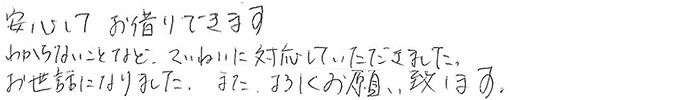 安心して お借りできます
わからないことなど、ていねいに対応していただきました。
お世話になりました。また、よろしくお願い致します。